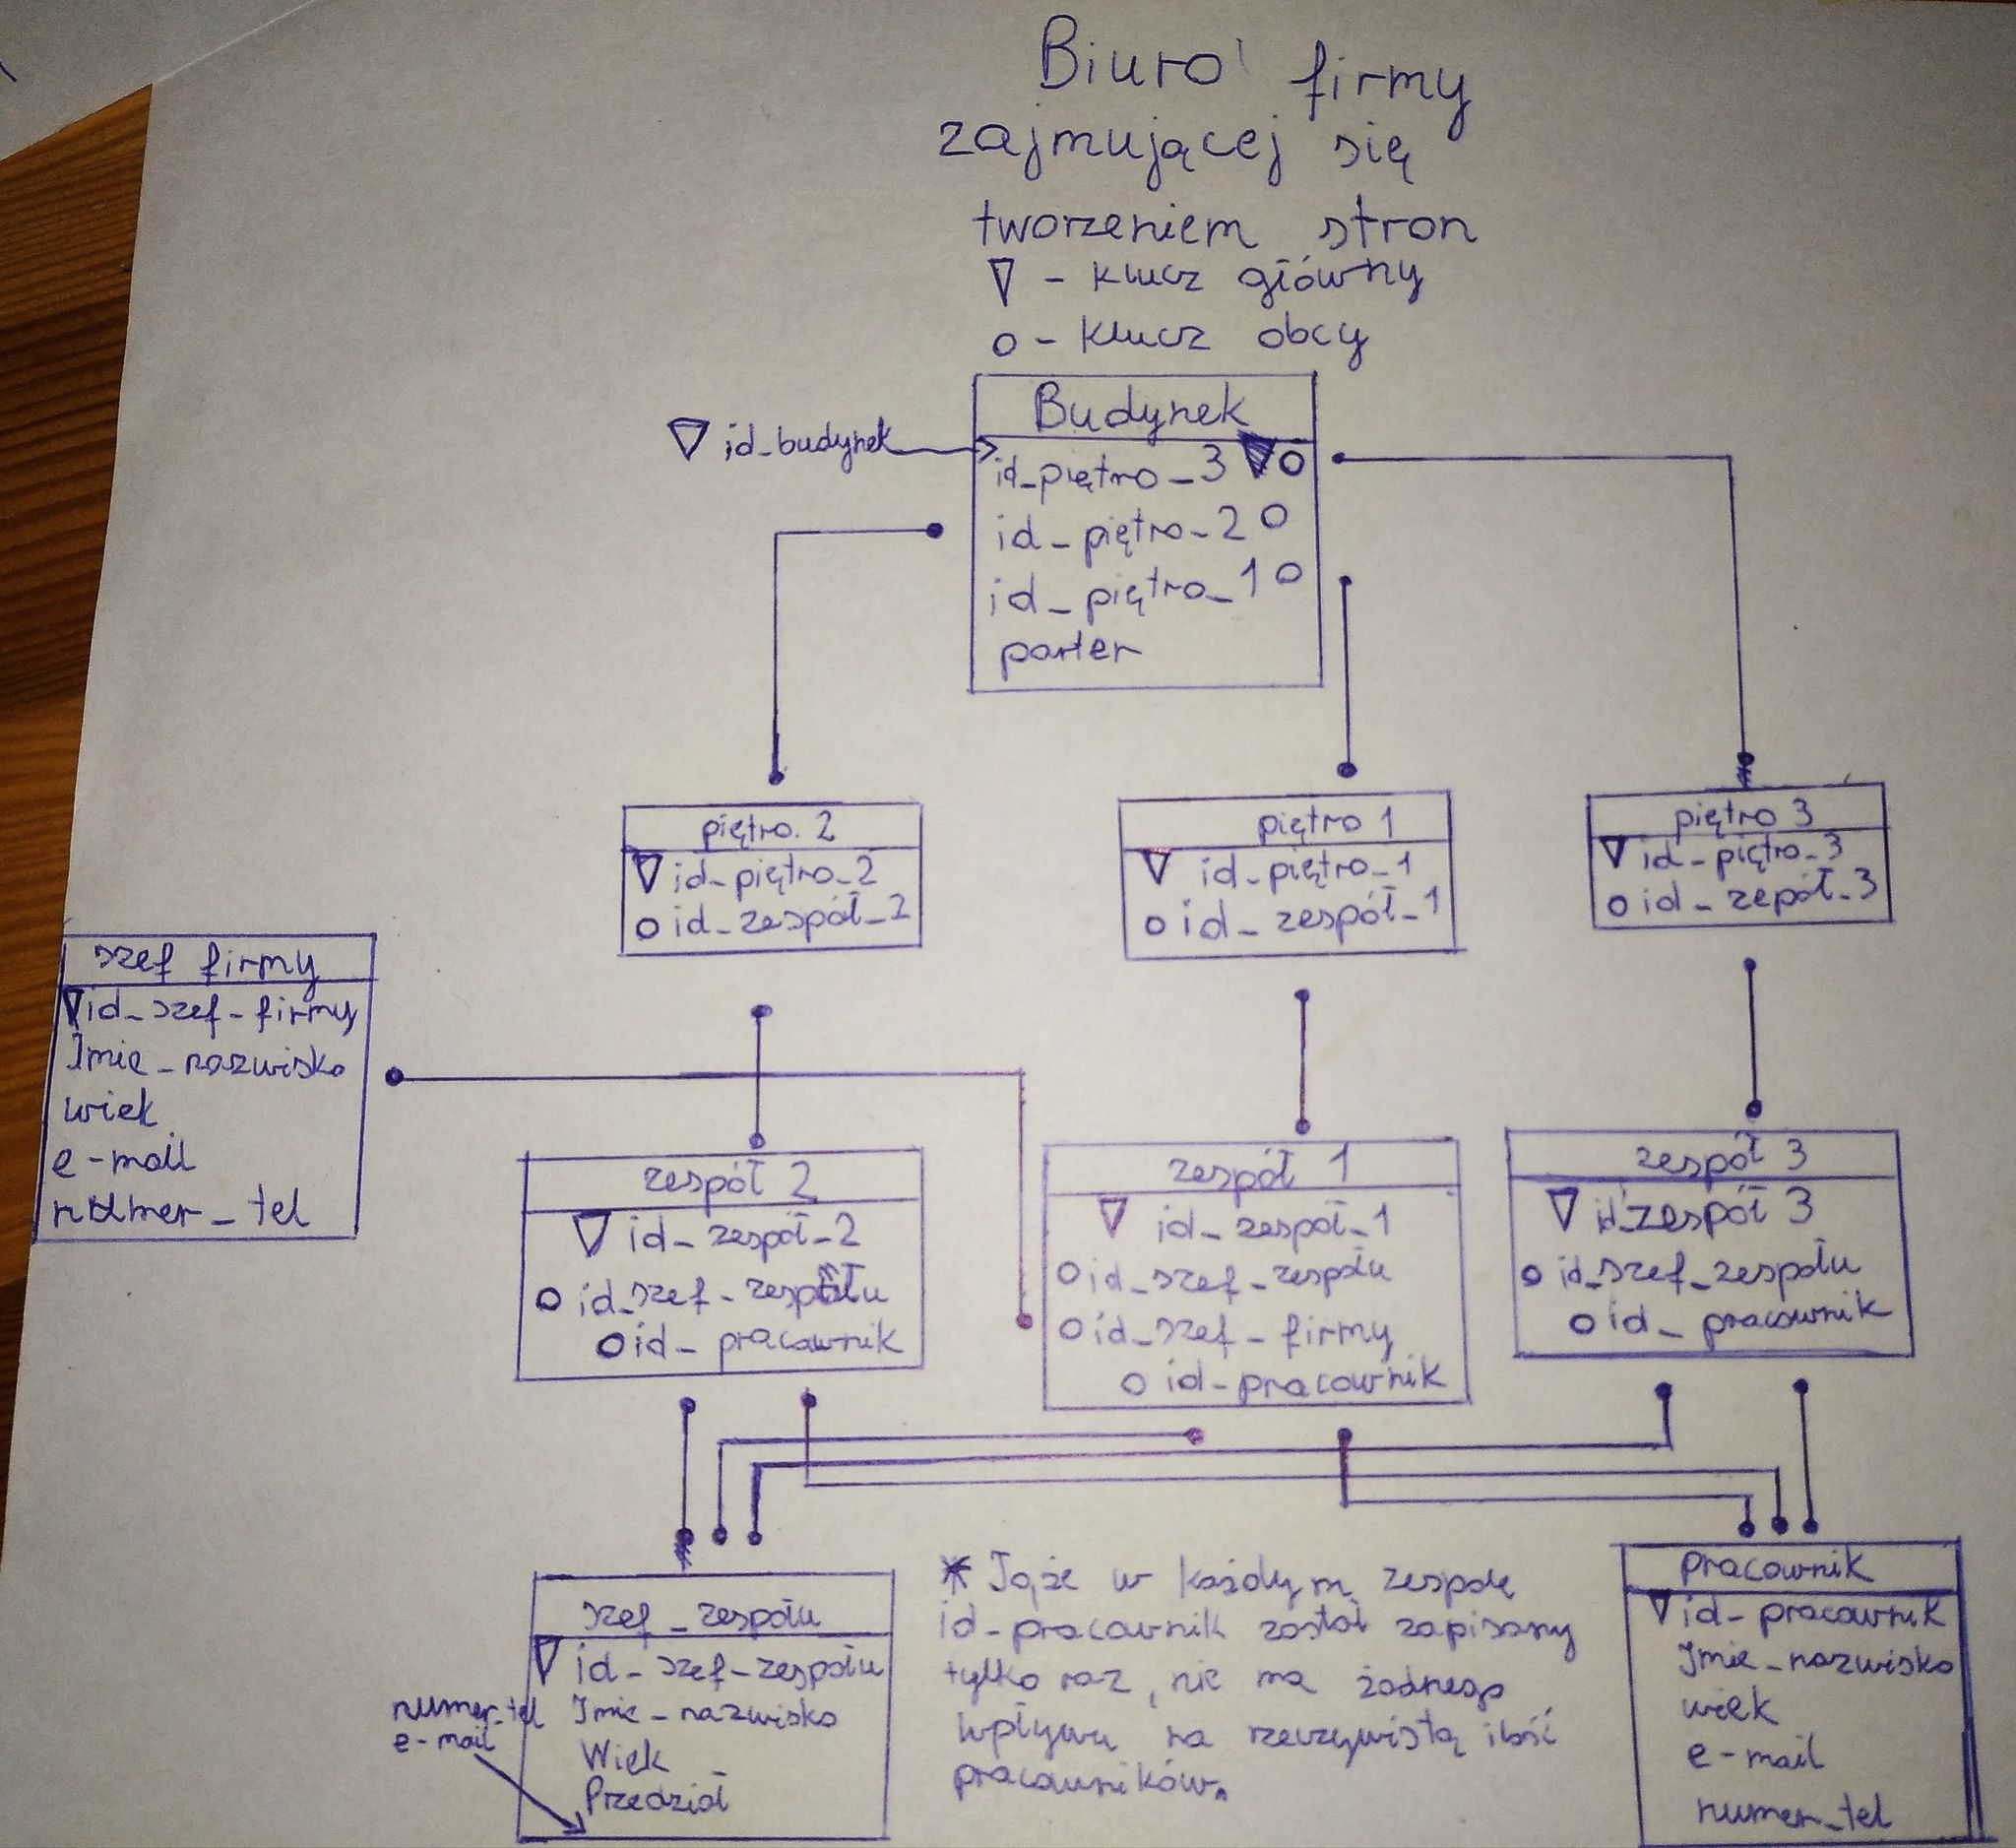 Biuro firmy
zajmującej się
tworzeniem stron
▽ - klucz główny
o - klucz obcy
Budynek
▽ id_budynek
id_piętro_3 o
id_piętro_2 o
id_piętro_1 o
parter
piętro. 2
▽ id_piętro_2
o id_zespół_2
piętro 1
▽ id_piętro_1
o id_zespół_1
piętro 3
▽ id_piętro_3
o id_zepół_3
szef firmy
▽ id_szef_firmy
Imie_nazwisko
wiek
e-mail
numer_tel
zespół 2
▽ id_zespół_2
o id_szef_zespołu
o id_pracownik
zespół 1
▽ id_zespół_1
o id_szef_zespołu
o id_szef_firmy
o id_pracownik
zespół 3
▽ id_zespół 3
o id_szef_zespołu
o id_pracownik
szef_zespołu
▽ id_szef_zespołu
Imie_nazwisko
Wiek
Przedział
numer_tel
e-mail
* w każdym zespole
id_pracownik został zapisany
tylko raz, nie ma żadnego
wpływu na rzeczywistą ilość
pracowników.
pracownik
▽ id_pracownik
Imie_nazwisko
wiek
e-mail
numer_tel